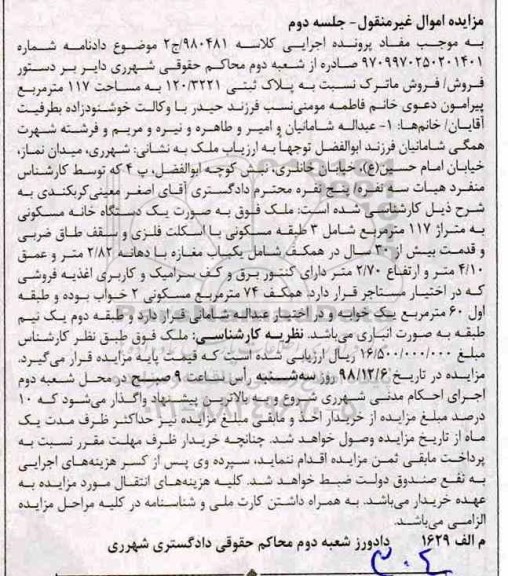 مزایده اموال غیرمنقول- جلسه دوم
به موجب مفاد پرونده اجرایی کلاسه ۹۸۰۴۸۱/ج۲ موضوع دادنامه شماره
۹۷۰۹۹۷۰۲۵۰۲۰۱۴۰۱ صادره از شعبه دوم محاکم حقوقی شهرری دایر بر دستور
فروش/ فروش ماترک نسبت به پلاک ثبتی ۱۲۰/۳۲۲۱ به مساحت ۱۱۷ مترمربع
پیرامون دعوی خانم فاطمه مومنی‌نسب فرزند حیدر با وکالت خوشنودزاده بطرفیت
آقایان/ خانم‌ها: ۱- عبداله شامانیان و امیر و طاهره و نیره و مریم و فرشته شهرت
همگی شامانیان فرزند ابوالفضل توجها به ارزیاب ملک به نشانی: شهرری، میدان نماز،
خیابان امام حسین(ع)، خیابان خانلری، نبش کوچه ابوالفضل، پ ۴ که توسط کارشناس
منفرد هیات سه نفره/ پنج نفره محترم دادگستری آقای اصغر معینی‌کربکندی به
شرح ذیل کارشناسی شده است: ملک فوق به صورت یک دستگاه خانه مسکونی
به متراژ ۱۱۷ مترمربع شامل ۳ طبقه مسکونی با اسکلت فلزی و سقف طاق ضربی
و قدمت بیش از ۳۰ سال در همکف شامل یکباب مغازه با دهانه ۲/۸۲ متر و عمق
۴/۱۰ متر و ارتفاع ۲/۷۰ متر دارای کنتور برق و کف سرامیک و کاربری اغذیه فروشی
که در اختیار مستاجر قرار دارد. همکف ۷۴ مترمربع مسکونی ۲ خواب بوده و طبقه
اول ۶۰ مترمربع یک خوابه و در اختیار عبداله شامانی قرار دارد و طبقه دوم یک نیم
طبقه به صورت انباری می‌باشد. نظریه کارشناسی: ملک فوق طبق نظر کارشناس
مبلغ ۱۶/۵۰۰/۰۰۰/۰۰۰ ریال ارزیابی شده است که قیمت پایه مزایده قرار می‌گیرد.
مزایده در تاریخ ۹۸/۱۲/۶ روز سه‌شنبه رأس ساعت ۹ صبح در محل شعبه دوم
اجرای احکام مدنی شهرری شروع و به بالاترین پیشنهاد واگذار می‌شود که ۱۰
درصد مبلغ مزایده از خریدار اخذ و مابقی مبلغ مزایده نیز حداکثر ظرف مدت یک
ماه از تاریخ مزایده وصول خواهد شد. چنانچه خریدار ظرف مهلت مقرر نسبت به
پرداخت مابقی ثمن مزایده اقدام ننماید، سپرده وی پس از کسر هزینه‌های اجرایی
به نفع صندوق دولت ضبط خواهد شد. کلیه هزینه‌های انتقال مورد مزایده به
عهده خریدار می‌باشد. به همراه داشتن کارت ملی و شناسنامه در کلیه مراحل مزایده
الزامی می‌باشد.
م الف ۱۶۲۹ دادورز شعبه دوم محاکم حقوقی دادگستری شهرری